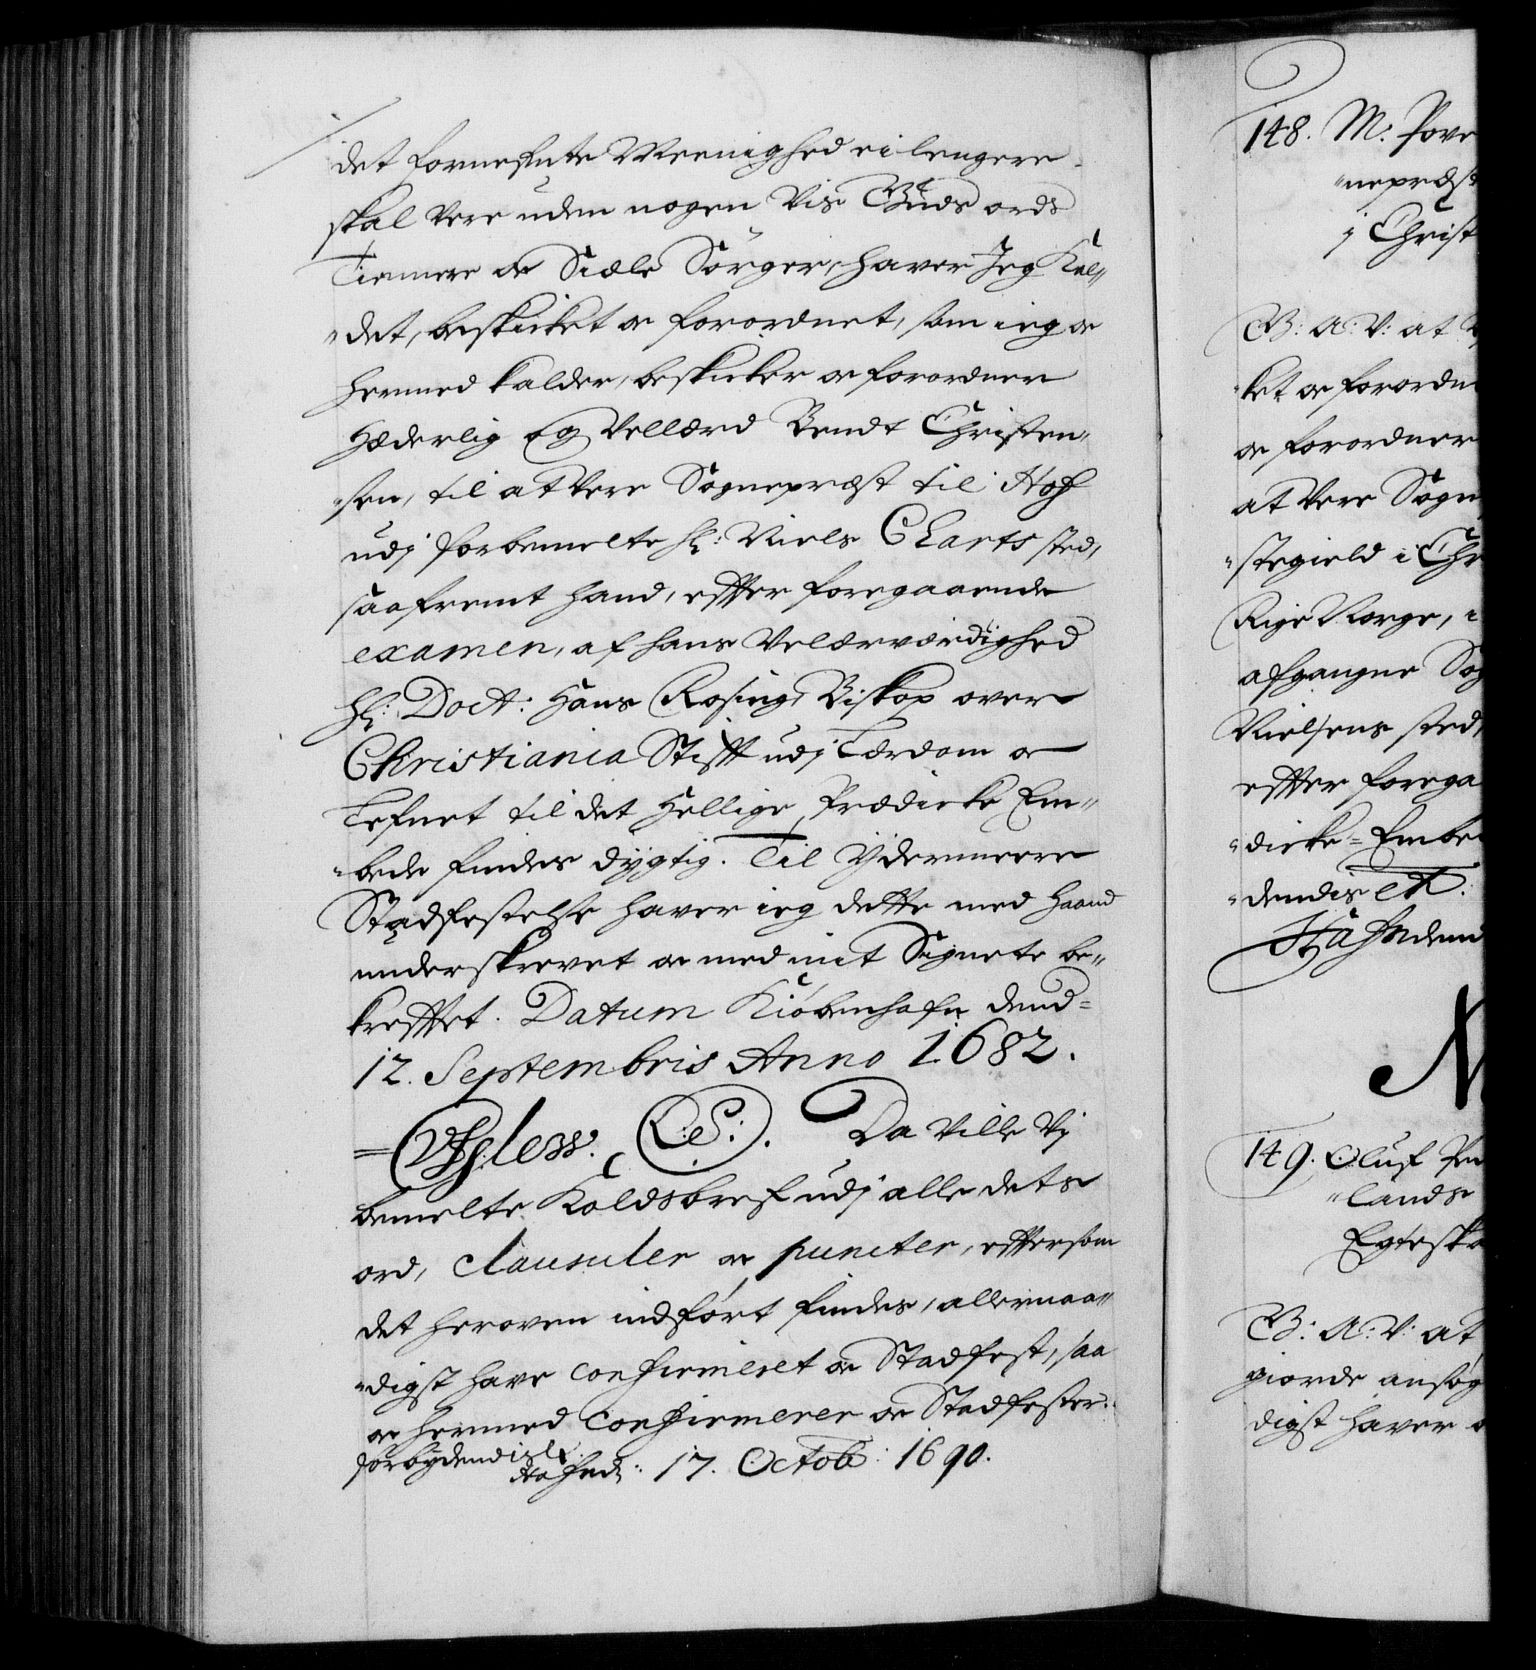 det fornefnte Meenighed ei lengere
skal vere uden nogen vis Guds ords
Tiennere oc Siæle Sörger, haver Jeg Kal„
„det, beskicket oc forordnet, som ieg oc
hermed kalder, beskicker oc forordner
Hæderlig Og Vellærd Bendt Christen„
„sen, til at vere Sognepræst til Hof
udj forbemelte Hr: Niels Charts sted,
saafremt hand, effter foregaaende
examen, af hans Velærværdighed
Hr: Doct: Hans Rosing, Biskop over
Christiania Stifft udj Lærdom oc
Lefnet til det Hellige Prædicke Em„
„bede findes dygtig. Til Ydermeere
Stadfestelse haver ieg dette med Haand
underskrevet oc med mit Signete be„
krefftet. Datum Kiöbenhafn dend
12. Septembris Anno 1682.
L.S. Da Ville Vj
bemelte Kaldsbref udj alle dets
ord, clausuler oc puncter, effter som
det heroven indfört findes, allernaa„
„digst have confirmeret oc Stadfest, saa
oc hermed confirmerer oc Stadfester.
forbydendis et
Hafnæ: 17. Octob: 1690.
148. M: Pove
„nepræst
j Christ
B: A: V: at
„ket oc forordn
oc forordner
at vere Sogn
„stegield i Chr
Rige Norge, i
afgangne Sog
Nielsens sted,
effter forega
„dicke=Embe
„dendis et.
Hafn dend
N
149. Oluf
„lands
Egtesk
B: A: V: at
giorde ansög
digst haver